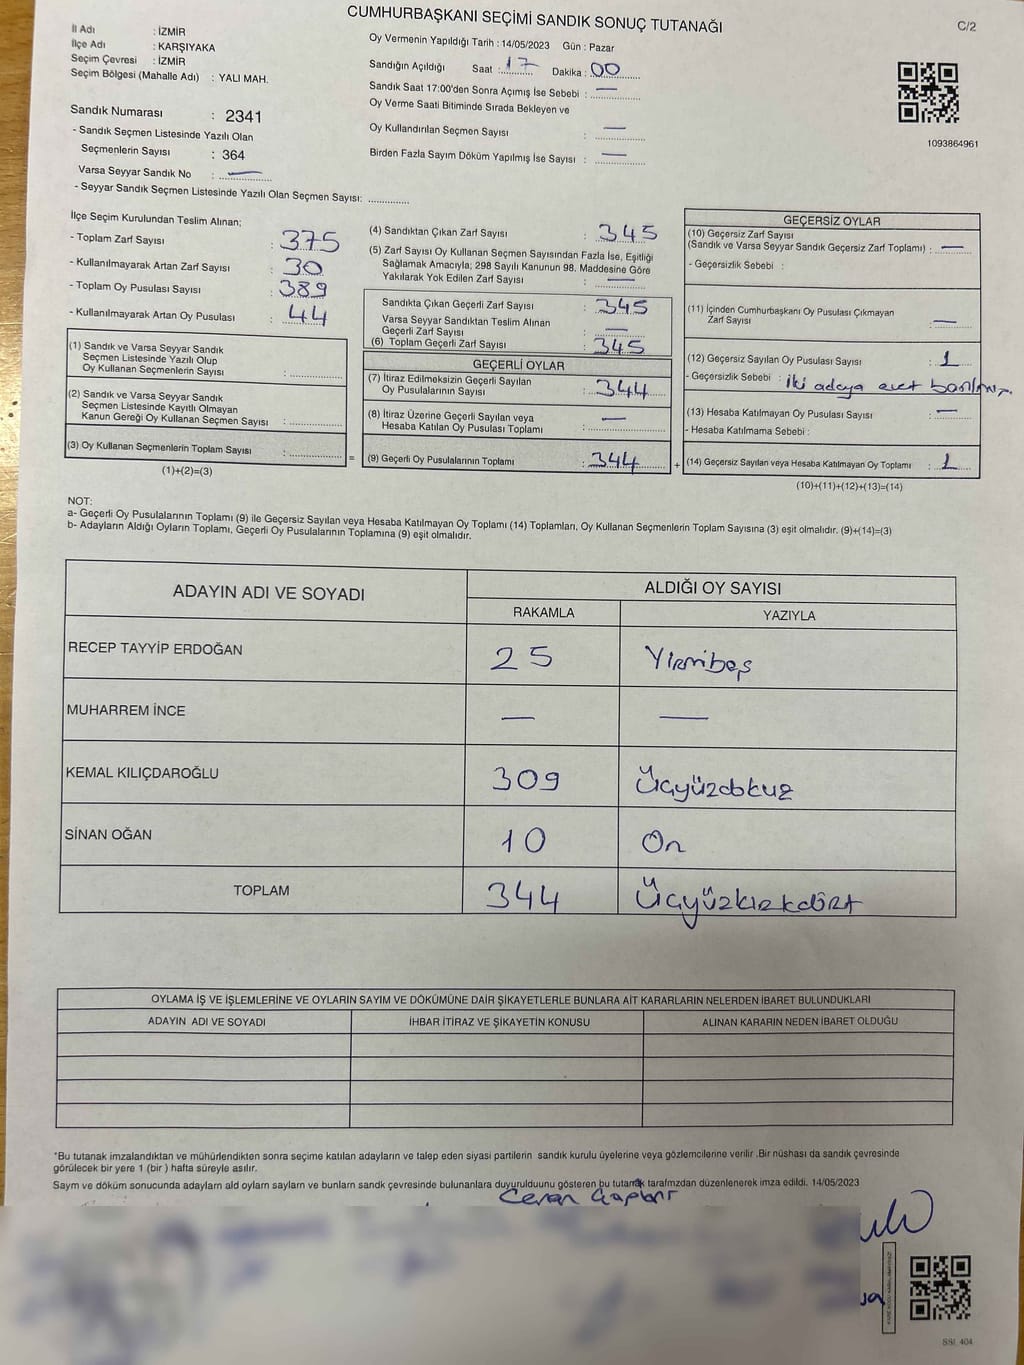 CUMHURBAŞKANI SEÇİMİ SANDIK SONUÇ TUTANAĞI
C/2
İl Adı : İZMİR
İlçe Adı : KARŞIYAKA
Seçim Çevresi : İZMİR
Seçim Bölgesi (Mahalle Adı) : YALI MAH.
Oy Vermenin Yapıldığı Tarih : 14/05/2023 Gün : Pazar
Sandığın Açıldığı Saat : 17 Dakika : 00
Sandık Saat 17:00'den Sonra Açımış İse Sebebi : —
Oy Verme Saati Bitiminde Sırada Bekleyen ve
Oy Kullandırılan Seçmen Sayısı : —
Birden Fazla Sayım Döküm Yapılmış İse Sayısı : —
1093864961
Sandık Numarası : 2341
- Sandık Seçmen Listesinde Yazılı Olan
Seçmenlerin Sayısı : 364
Varsa Seyyar Sandık No : —
- Seyyar Sandık Seçmen Listesinde Yazılı Olan Seçmen Sayısı: ............
İlçe Seçim Kurulundan Teslim Alınan;
- Toplam Zarf Sayısı : 375
- Kullanılmayarak Artan Zarf Sayısı : 30
- Toplam Oy Pusulası Sayısı : 389
- Kullanılmayarak Artan Oy Pusulası : 44
(1) Sandık ve Varsa Seyyar Sandık
Seçmen Listesinde Yazılı Olup
Oy Kullanan Seçmenlerin Sayısı : ............
(2) Sandık ve Varsa Seyyar Sandık
Seçmen Listesinde Kayıtlı Olmayan
Kanun Gereği Oy Kullanan Seçmen Sayısı : ............
(3) Oy Kullanan Seçmenlerin Toplam Sayısı : ............
(1)+(2)=(3)
=
(4) Sandıktan Çıkan Zarf Sayısı : 345
(5) Zarf Sayısı Oy Kullanan Seçmen Sayısından Fazla İse, Eşitliği
Sağlamak Amacıyla; 298 Sayılı Kanunun 98. Maddesine Göre
Yakılarak Yok Edilen Zarf Sayısı : —
Sandıkta Çıkan Geçerli Zarf Sayısı : 345
Varsa Seyyar Sandıktan Teslim Alınan
Geçerli Zarf Sayısı : —
(6) Toplam Geçerli Zarf Sayısı : 345
GEÇERLİ OYLAR
(7) İtiraz Edilmeksizin Geçerli Sayılan
Oy Pusulalarının Sayısı : 344
(8) İtiraz Üzerine Geçerli Sayılan veya
Hesaba Katılan Oy Pusulası Toplamı : —
(9) Geçerli Oy Pusulalarının Toplamı : 344
+
GEÇERSİZ OYLAR
(10) Geçersiz Zarf Sayısı
(Sandık ve Varsa Seyyar Sandık Geçersiz Zarf Toplamı) : —
- Geçersizlik Sebebi :
(11) İçinden Cumhurbaşkanı Oy Pusulası Çıkmayan
Zarf Sayısı : —
(12) Geçersiz Sayılan Oy Pusulası Sayısı : 1
- Geçersizlik Sebebi : İki adaya evet basılmış.
(13) Hesaba Katılmayan Oy Pusulası Sayısı : —
- Hesaba Katılmama Sebebi :
(14) Geçersiz Sayılan veya Hesaba Katılmayan Oy Toplamı : 1
(10)+(11)+(12)+(13)=(14)
NOT:
a- Geçerli Oy Pusulalarının Toplamı (9) ile Geçersiz Sayılan veya Hesaba Katılmayan Oy Toplamı (14) Toplamları, Oy Kullanan Seçmenlerin Toplam Sayısına (3) eşit olmalıdır. (9)+(14)=(3)
b- Adayların Aldığı Oyların Toplamı, Geçerli Oy Pusulalarının Toplamına (9) eşit olmalıdır.
ADAYIN ADI VE SOYADI
ALDIĞI OY SAYISI
RAKAMLA YAZIYLA
RECEP TAYYİP ERDOĞAN 25 Yirmibeş
MUHARREM İNCE — —
KEMAL KILIÇDAROĞLU 309 Üçyüzdokuz
SİNAN OĞAN 10 On
TOPLAM 344 Üçyüzkırkdört
OYLAMA İŞ VE İŞLEMLERİNE VE OYLARIN SAYIM VE DÖKÜMÜNE DAİR ŞİKAYETLERLE BUNLARA AİT KARARLARIN NELERDEN İBARET BULUNDUKLARI
ADAYIN ADI VE SOYADI İHBAR İTİRAZ VE ŞİKAYETİN KONUSU ALINAN KARARIN NEDEN İBARET OLDUĞU
*Bu tutanak imzalandıktan ve mühürlendikten sonra seçime katılan adayların ve talep eden siyasi partilerin sandık kurulu üyelerine veya gözlemcilerine verilir .Bir nüshası da sandık çevresinde
görülecek bir yere 1 (bir ) hafta süreyle asılır.
Saym ve döküm sonucunda adaylarn ald oylarn saylarn ve bunlarn sandk çevresinde bulunanlara duyurulduunu gösteren bu tutanak tarafmzdan düzenlenerek imza edildi. 14/05/2023
SSI. 404